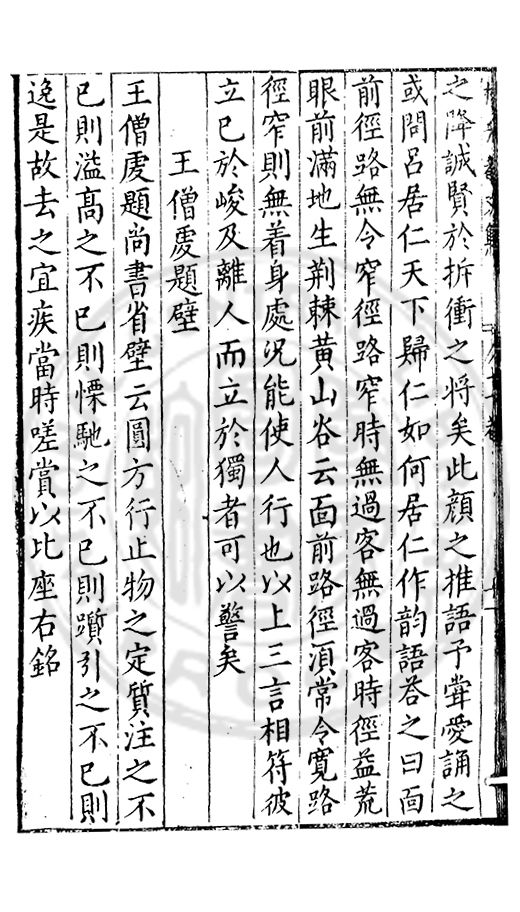 之降誠賢於拆衝之將矣此顔之推語予甞愛誦之
或問呂居仁天下歸仁如何居仁作韵語荅之曰面
前徑路無令窄徑路窄時無過客無過客時徑益荒
眼前滿地生荆棘黄山谷云面前路徑湏常令寛路
徑窄則無着身處况能使人行也以上三言相符彼
立巳於峻及離人而立於獨者可以警矣
王僧虔題壁
王僧虔題尚書省壁云圓方行止物之定質注之不
巳則溢高之不巳則慄馳之不巳則躓引之不巳則
逸是故去之宜疾當時嗟賞以比座右銘